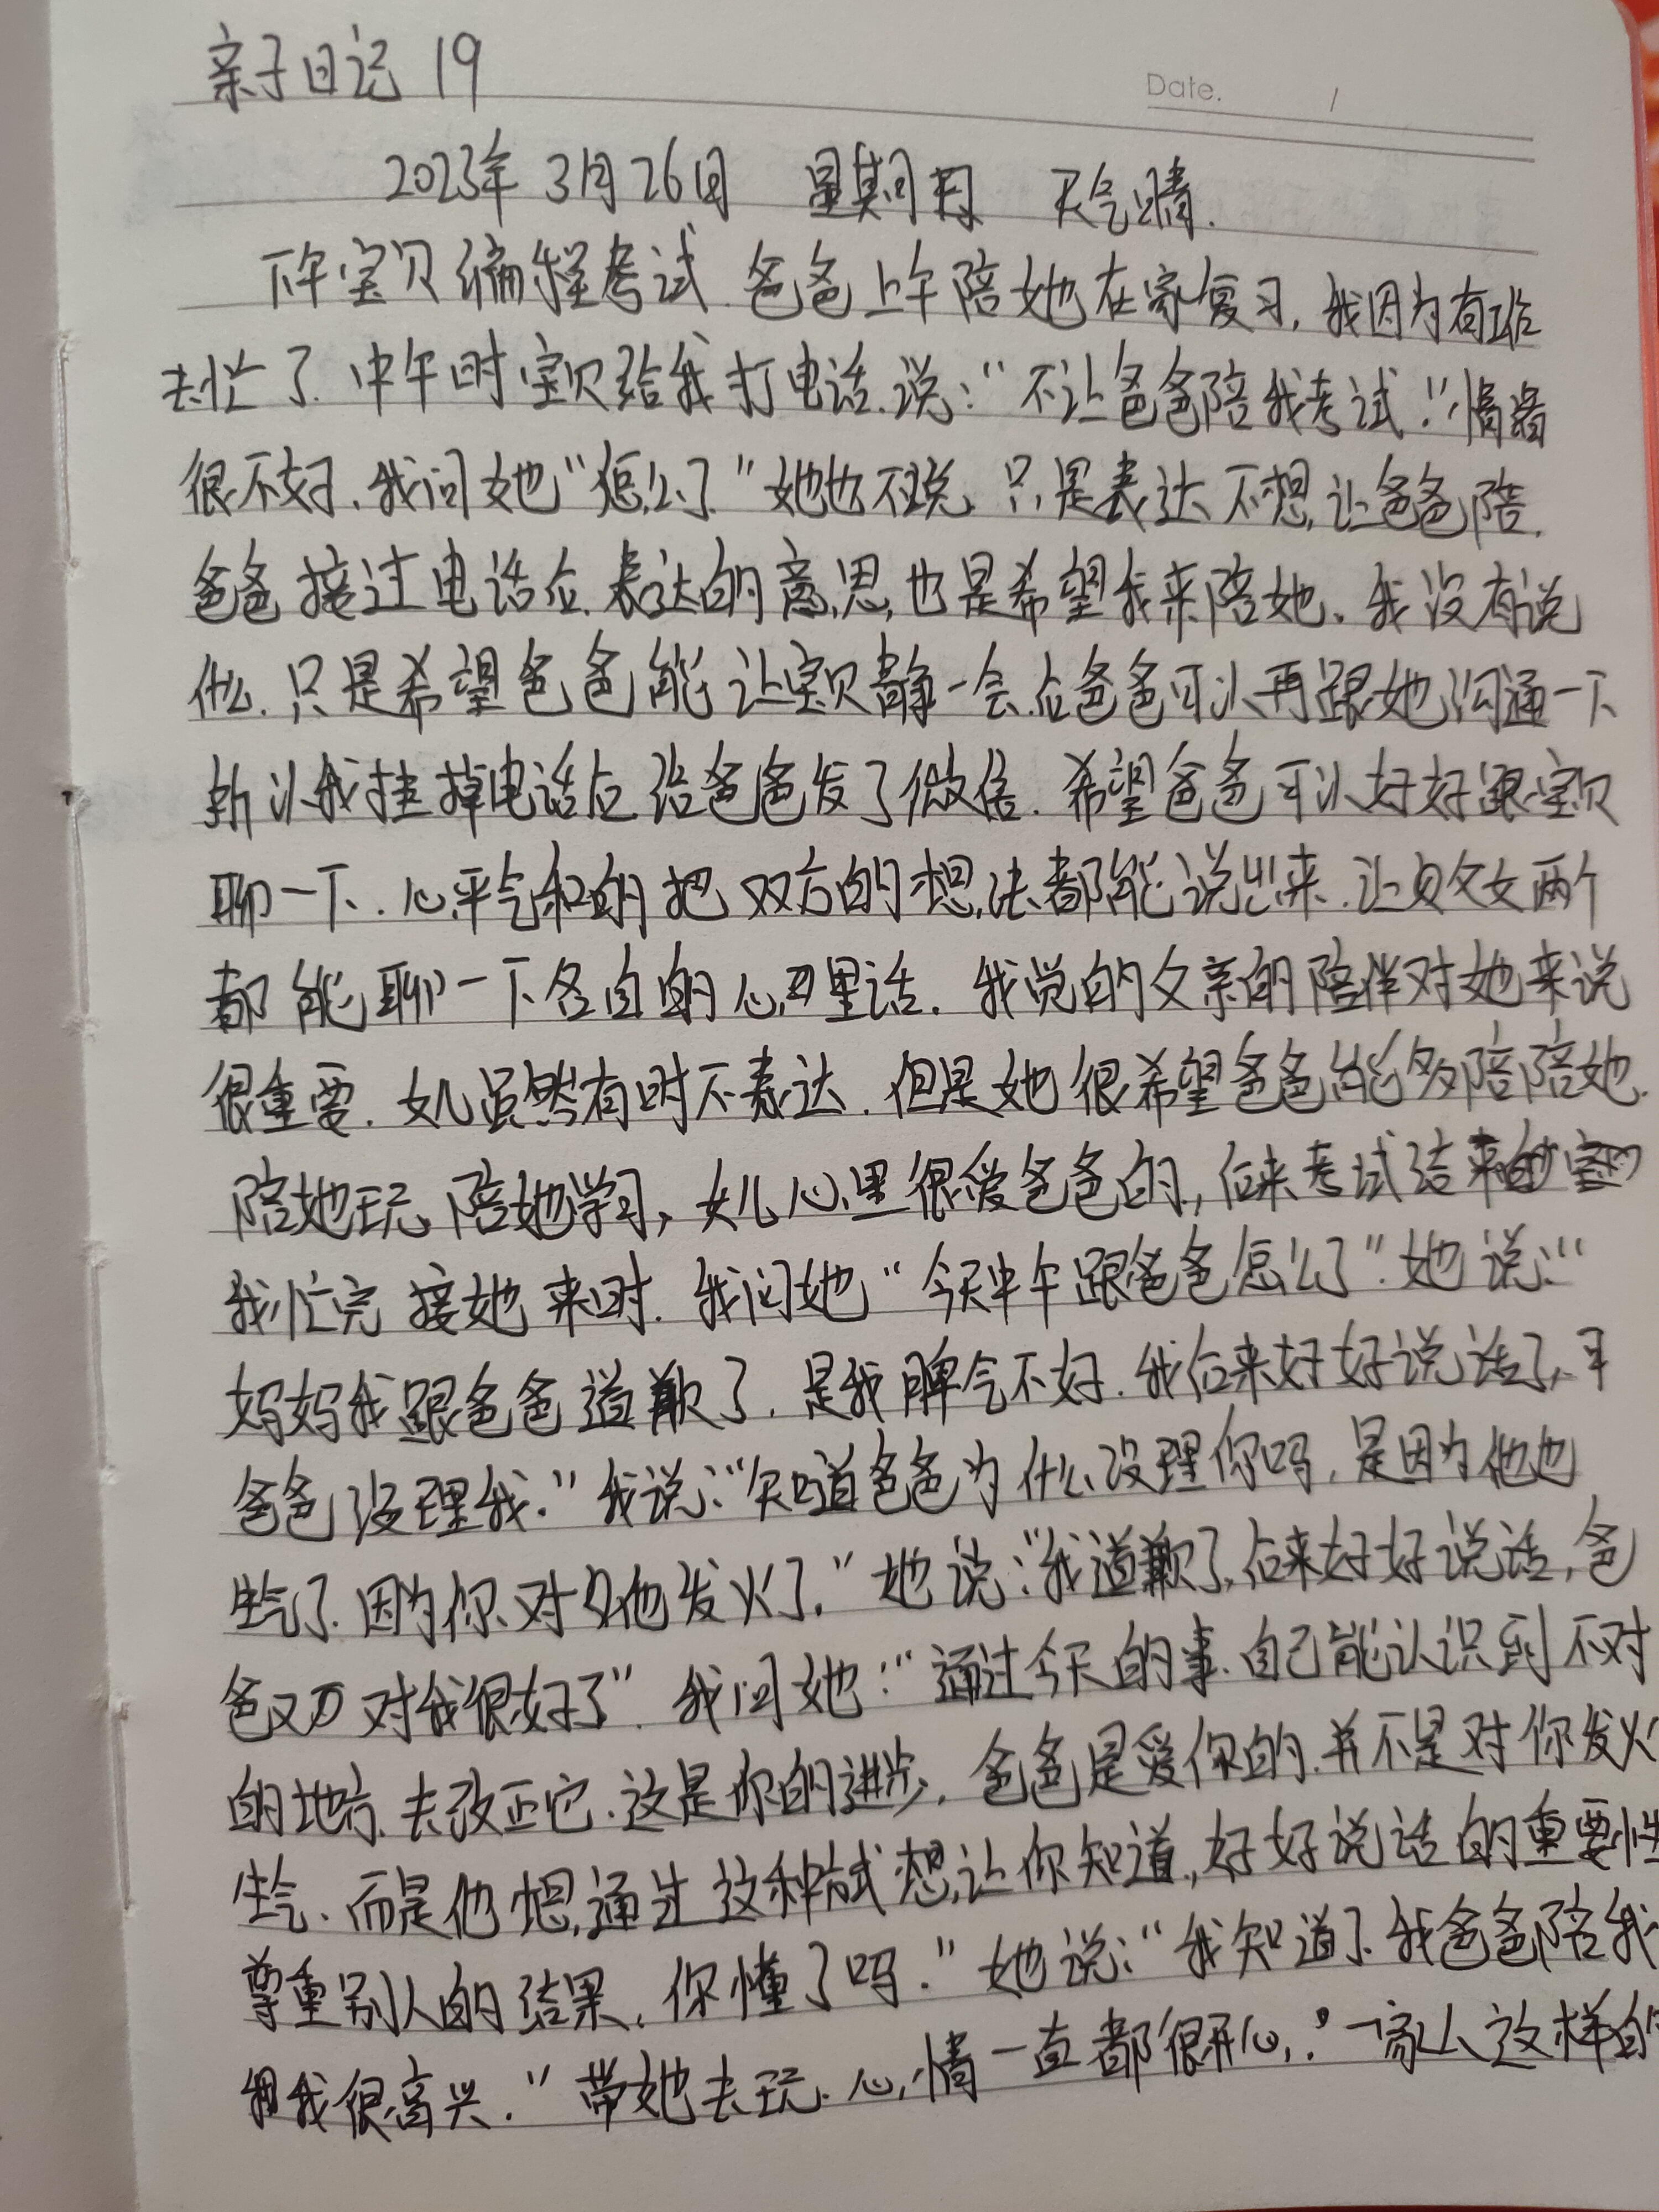 亲子日记 19
Date. /
2023年 3月26日 星期日 天气晴.
下午宝贝编程考试.爸爸上午陪她在家复习,我因为有班
去忙了.中午时宝贝给我打电话.说:"不让爸爸陪我考试!"情绪
很不好.我问她"怎么了"她也不说,只是表达不想让爸爸陪.
爸爸接过电话后.表达的意思,也是希望我来陪她。我没有说
什么.只是希望爸爸能让宝贝静一会.后爸爸可以再跟她沟通一下
所以我挂掉电话后给爸爸发了微信.希望爸爸可以好好跟宝贝
聊一下.心平气和的把双方的想法都能说出来.让父女两个
都能聊一下各自的心里话.我觉的父亲的陪伴对她来说
很重要.女儿虽然有时不表达.但是她很希望爸爸能多陪陪她.
陪她玩,陪她学习,女儿心里很爱爸爸的,后来考试结束
我忙完接她来时.我问她"今天中午跟爸爸怎么了".她说:"
妈妈我跟爸爸道歉了.是我脾气不好.我后来好好说话了,
爸爸没理我."我说:"知道爸爸为什么没理你吗,是因为他也
生气了.因为你对他发火了."她说:"我道歉了,后来好好说话,爸
爸又对我很好了".我问她:"通过今天的事.自己能认识到不对
的地方.去改正它.这是你的进步.爸爸是爱你的.并不是对你发火
生气.而是他想通过这种方式想让你知道,好好说话的重要性
尊重别人的结果,你懂了吗."她说:"我知道了.我爸爸陪我
我很高兴."带她去玩.心情一直都很开心,.一家人这样的